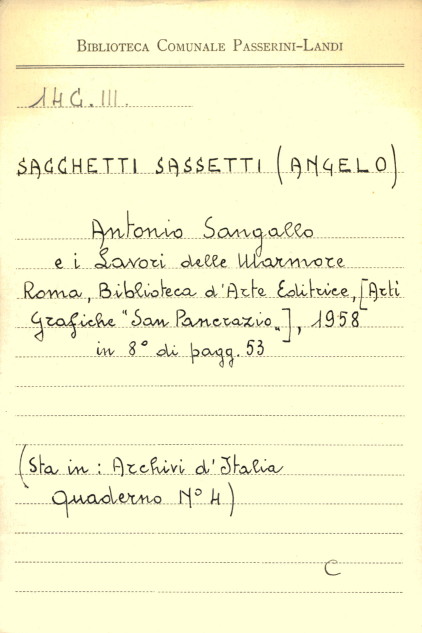 BIBLIOTECA COMUNALE PASSERINI-LANDI
14G.III.
SACCHETTI SASSETTI (ANGELO)
Antonio Sangallo
e i Lavori delle Marmore
Roma, Biblioteca d'Arte Editrice, [Arti
Grafiche "San Pancrazio„], 1958
in 8° di pagg. 53
(Sta in: Archivi d'Italia
Quaderno N° 4)
C